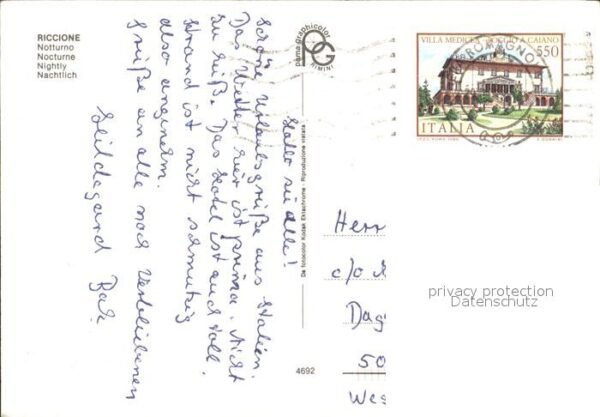 RICCIONE
Notturno
Nocturne
Nightly
Nachtlich
Hallo sie alle!
Schöne Urlaubsgrüße aus Italien.
Das Wetter hier ist prima. Nicht
zu heiß. Das Hotel ist auch toll.
Strand ist nicht schmutzig
also angenehm.
Grüße an alle noch Verbliebenen
Hildegard
plurima graphicolor
OG
RIMINI
De fotocolor Kodak Ektachrome - Riproduzione vietata
4692
VILLA MEDICEA POGGIO A CAIANO
550
ITALIA
ROMAGNO
Herr
c/o
Dag
50
Wes
privacy protection
Datenschutz